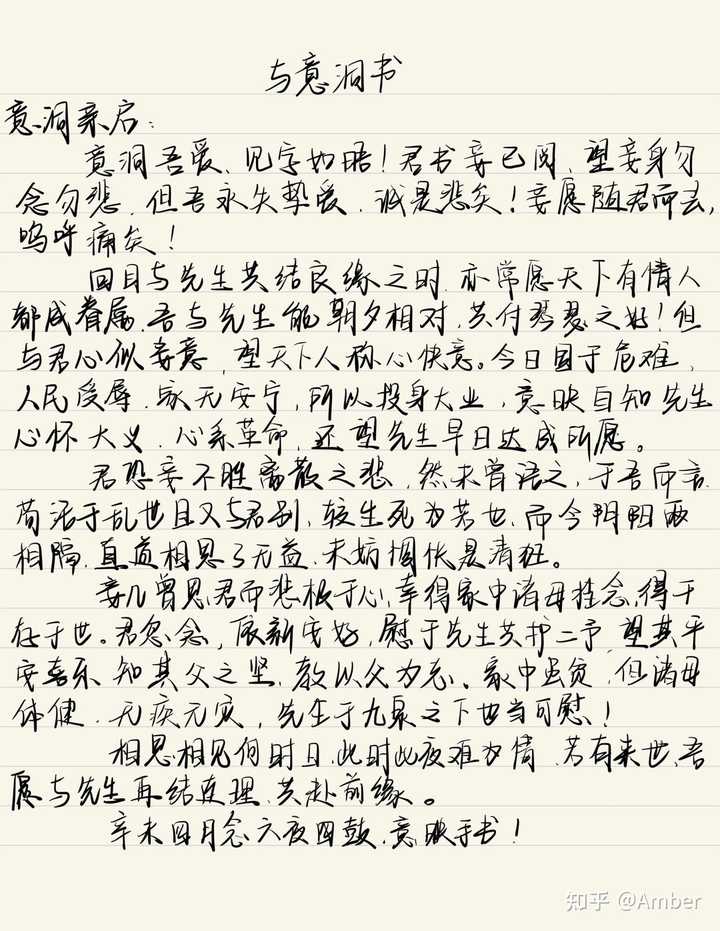 与意洞书
意洞亲启：
意洞吾爱、见字如晤！君书妾已阅、望妾身勿
念勿悲、但吾永失挚爱、诚是悲矣！妾愿随君而去，
呜呼痛矣！
回目与先生共结良缘之时、亦常愿天下有情人
都成眷属、吾与先生能朝夕相对、共付琴瑟之好！但
与君心似妾意、望天下人称心快意。今日国于危难、
人民受辱、家无安宁，所以投身大业，意映自知先生
心怀大义、心系革命、还望先生早日达成所愿。
君恐妾不胜离散之悲、然未曾语之，于吾而言
苟活于乱世且又与君别，较生死为苦也、而今阴阳两
相隔、直道相思了无益、未妨惆怅是清狂。
妾几曾思君而悲极于心、幸得家中诸母挂念、得于
存于世。君忽念，依新安好，慰于先生共护二子，望其平
安喜乐、知其父之坚、教以父为志、家中虽贫，但诸母
体健、无疾无灾，先生于九泉之下也当可慰！
相思相见何时日、此时此夜难为情、若有来世、吾
愿与先生再结连理、共赴前缘。
辛未四月念六夜四鼓、意映手书！
知乎 @Amber